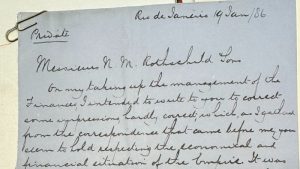 Rio de Janeiro 19 Jan/86
Private
Messieurs N. M. Rothschild Sons
On my taking up the management of the
Finances I intended to write to you to correct
some impressions hardly correct which, as I gathered
from the correspondence that came before me, you
seem to hold respecting the economical and
financial situation of the Empire. It was